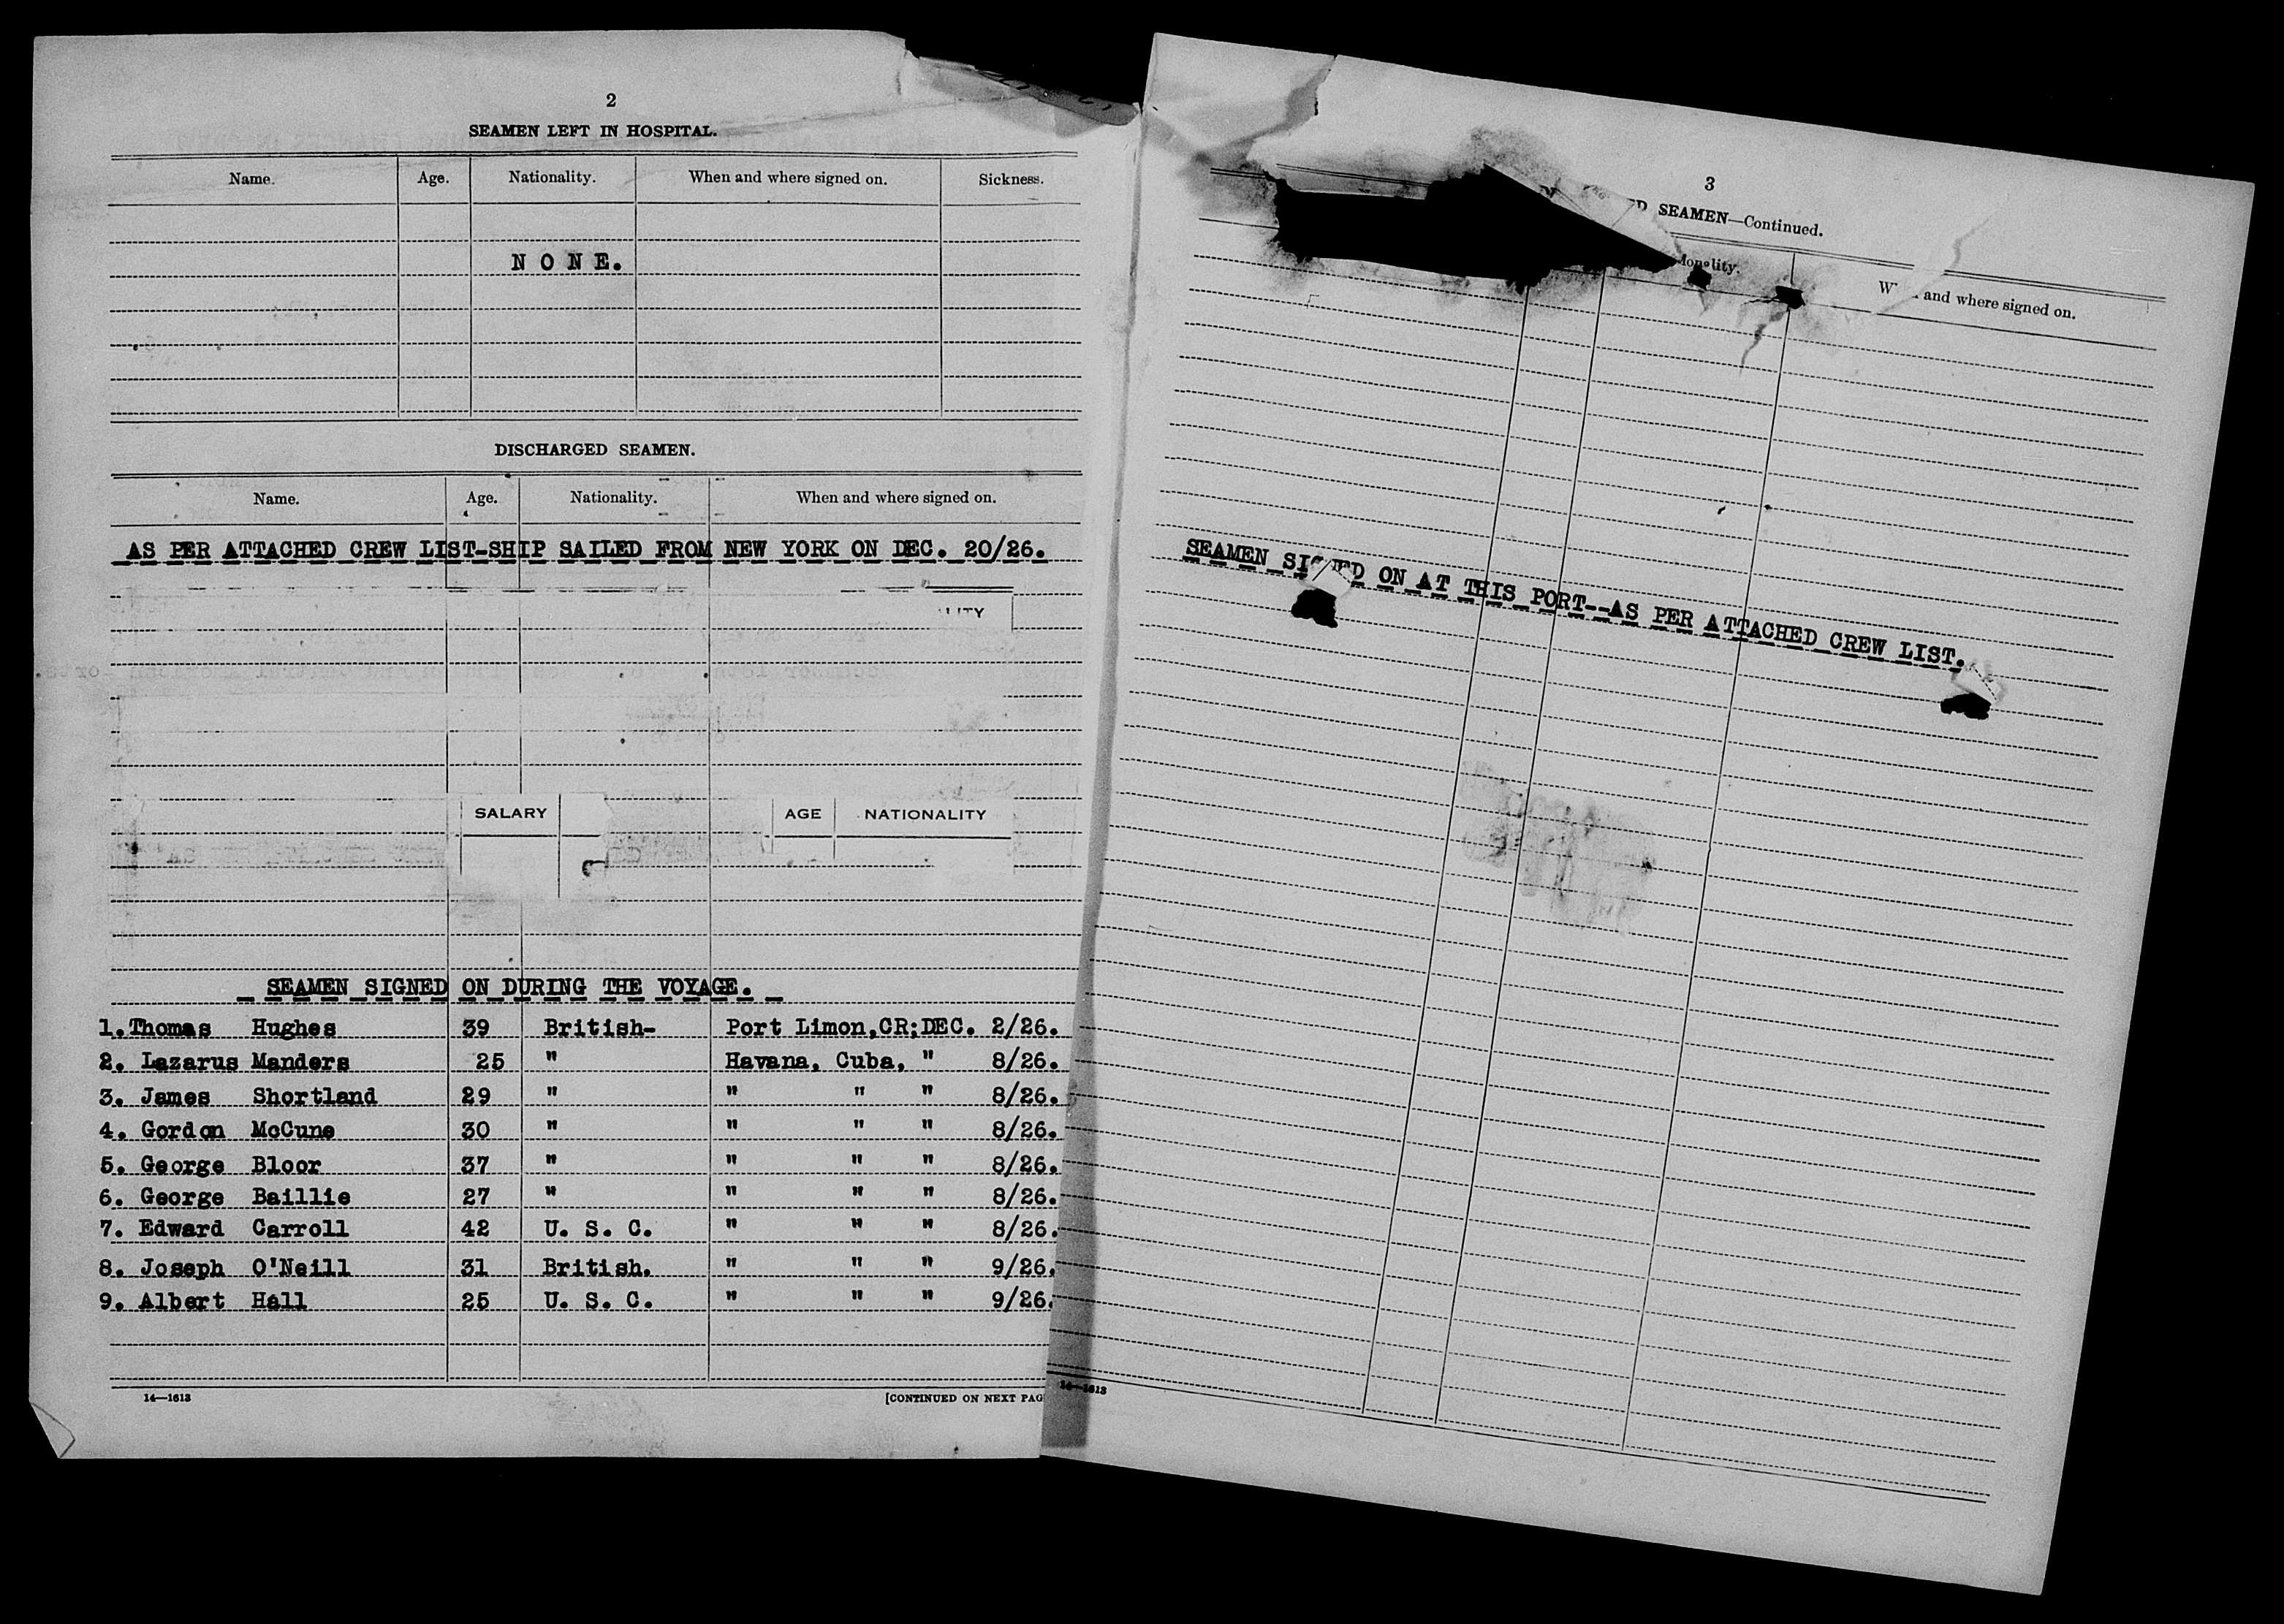 2
SEAMEN LEFT IN HOSPITAL.
Name. Age. Nationality. When and where signed on. Sickness.
N O N E.
DISCHARGED SEAMEN.
Name. Age. Nationality. When and where signed on.
AS PER ATTACHED CREW LIST-SHIP SAILED FROM NEW YORK ON DEC. 20/26.
SALARY AGE NATIONALITY
SEAMEN SIGNED ON DURING THE VOYAGE.
1. Thomas Hughes 39 British- Port Limon,CR;DEC. 2/26.
2. Lazarus Manders 25 " Havana, Cuba, " 8/26.
3. James Shortland 29 " " " " 8/26.
4. Gordon McCune 30 " " " " 8/26.
5. George Bloor 37 " " " " 8/26.
6. George Baillie 27 " " " " 8/26.
7. Edward Carroll 42 U. S. C. " " " 8/26.
8. Joseph O'Neill 31 British. " " " 9/26.
9. Albert Hall 25 U. S. C. " " " 9/26.
14—1613 [CONTINUED ON NEXT PAG
3
SEAMEN—Continued.
and where signed on.
SEAMEN SIGNED ON AT THIS PORT--AS PER ATTACHED CREW LIST.
14—1613